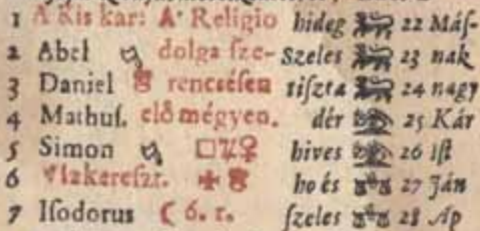 1 A Kis kar: A' Religio hideg 22 Máſ-
2 Abel dolga ſze- Szeles 23 nak
3 Daniel rencséſen tiſzta 24 nagy
4 Mathuſ. elő mégyen. dér 25 Kár
5 Simon □♃♀ hives 26 iſt
6 Vizkereſzt. ho és 27 Ján
7 Iſodorus ☾ 6. r. ſzeles 28 Áp